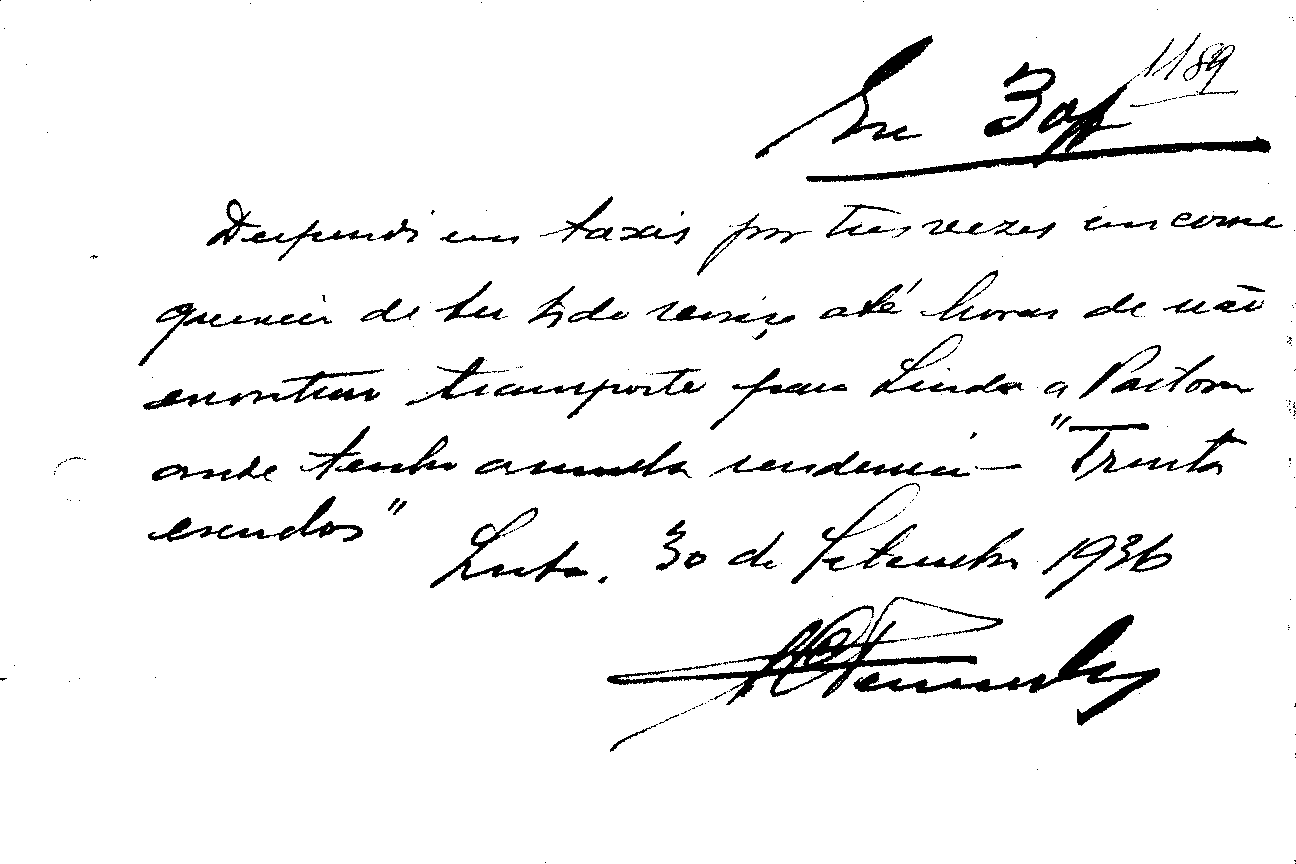 1189
Esc 30$
Despendi em taxis por tres vezes em conse
quencia de ter tido serviço até horas de não
encontrar transporte para Linda a Pastora
onde tenho a minha residencia — "Trinta
escudos"
30 de Setembro 1936
Fernandes